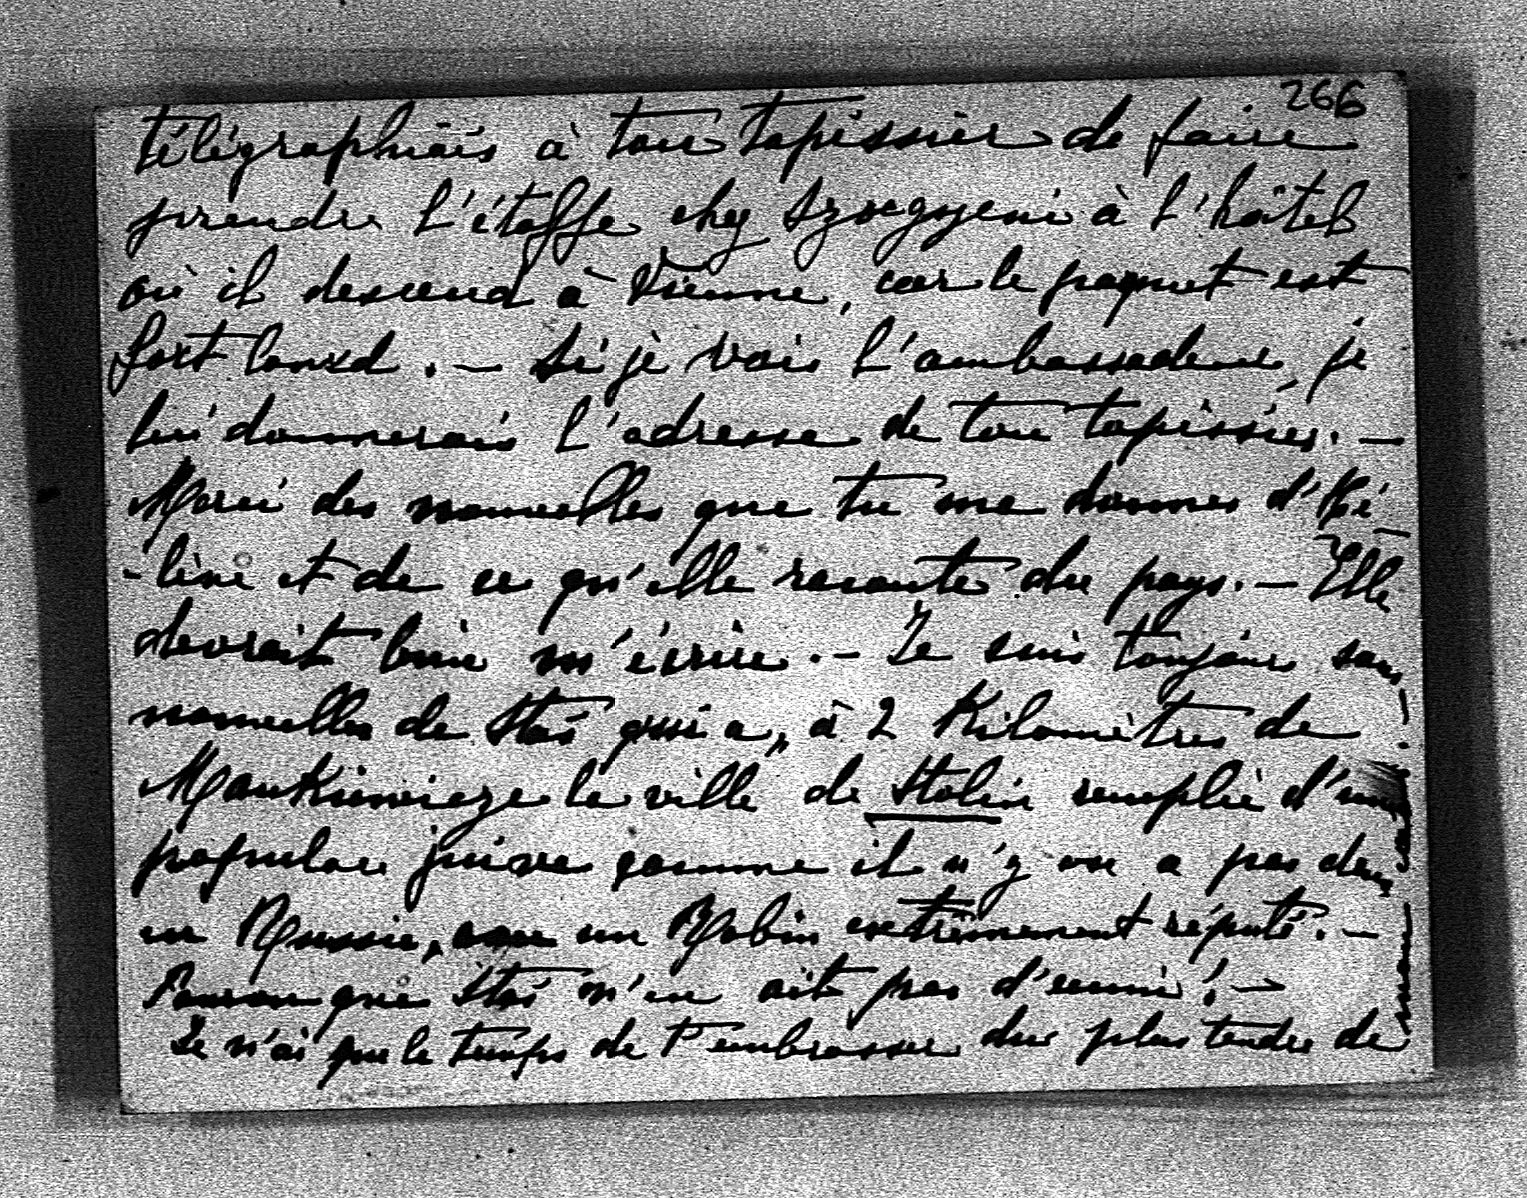 266
télégraphiais à ton tapissier de faire
prendre l'étoffe chez Szoegyeni à l'hôtel
où il descend à Vienne, car le paquet est
fort lourd. — Si je vois l'ambassadeur, je
lui donnerais l'adresse de ton tapissier. —
Merci des nouvelles que tu me donnes d'Hé-
-lène et de ce qu'elle raconte du pays. — Elle
devrait bien m'écrire. — Je suis toujours sans
nouvelles de Stas qui a, à 2 Kilomètres de
Mankiewicze la ville de Stolin remplie d'une
populace juive comme il n'y en a pas deux
en Russie, avec un Rabin extrêmement réputé. —
Pourvu que Stas n'en ait pas d'ennui! —
Je n'ai que le temps de t'embrasser du plus tendre de